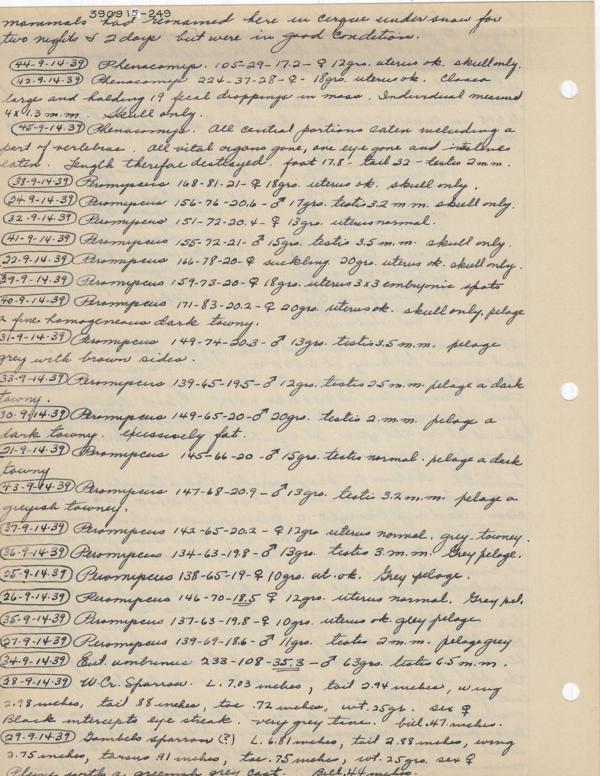 390915-249
mammals had remained here in cirque under snow for
two nights & 2 days but were in good condition.
(44-9-14-39) Phenacomys. 105-29-17.2- ♀ 12grs. uterus ok. skull only.
(42-9-14-39) Phenacomys 224-37-28- ♀ - 18grs. uterus ok. Cloaca
large and holding 19 fecal droppings in mass. Individual measured
4 x 1.3 m.m. Skull only.
(45-9-14-39) Phenacomys. All central portions eaten including a
part of vertebrae. All vital organs gone, one eye gone and intestines
eaten. Length therefore destroyed. foot 17.8 - tail 32 - testis 2 mm.
(38-9-14-39) Peromyscus 168-81-21- ♀ 18grs. uterus ok. skull only.
(24-9-14-39) Peromyscus 156-76-20.6- ♂ 17grs. testis 3.2 m.m. skull only.
(32-9-14-39) Peromyscus 151-72-20.4- ♀ 13grs. uterus normal.
(41-9-14-39) Peromyscus 155-72-21- ♂ 15grs. testis 3.5 m.m. skull only.
(22-9-14-39) Peromyscus 166-78-20- ♀ suckling. 20grs. uterus ok. skull only.
39-9-14-39) Peromyscus 159-73-20- ♀ 18grs. uterus 3x3 embryonic spots
40-9-14-39) Peromyscus 171-83-20.2- ♀ 20grs. uterus ok. skull only, pelage
a fine homogeneous dark towny.
31-9-14-39) Peromyscus 149-74-20.3- ♂ 13grs. testis 3.5 m.m. pelage
grey with brown sides.
33-9-14-39) Peromyscus 139-65-19.5- ♂ 12grs. testis 2.5 m.m. pelage a dark
towny.
30-9-14-39) Peromyscus 149-65-20- ♂ 20grs. testis 2 m.m. pelage a
dark towny. Excessively fat.
21-9-14-39) Peromyscus 145-66-20- ♂ 15grs. testis normal. pelage a dark
towny
43-9-14-39) Peromyscus 147-68-20.9- ♂ 13grs. testis 3.2 m.m. pelage a
greyish towney.
37-9-14-39) Peromyscus 142-65-20.2- ♀ 12grs uterus normal. grey-towney.
36-9-14-39) Peromyscus 134-63-19.8- ♂ 13grs. testis 3 m.m. Grey pelage.
25-9-14-39) Peromyscus 138-65-19- ♀ 10grs. ut. ok. Grey pelage.
26-9-14-39) Peromyscus 146-70-18.5 ♀ 12grs. uterus normal. Grey pel.
35-9-14-39) Peromyscus 137-63-19.8- ♀ 10grs. uterus ok. grey pelage
27-9-14-39) Peromyscus 139-69-18.6- ♂ 11grs. testis 2 m.m. pelage grey
34-9-14-39) Eut. umbrinus 233-108-35.3- ♂ 63grs. testis 6.5 m.m.
28-9-14-39) W. Cr. Sparrow. L. 7.03 inches, tail 2.94 inches, wing
2.98 inches, tail .88 inches, toe .72 inches, wt. 25gr. sex ♀
Black intercepts eye streak. very grey tone. bill .47 inches.
(29-9-14-39) Gambels sparrow (?) L. 6.81 inches, tail 2.88 inches, wing
2.75 inches, tarsus .91 inches, toe .75 inches, wt. 25grs. sex ♀
Plumes with a greenish grey cast. Bill .44 inches.